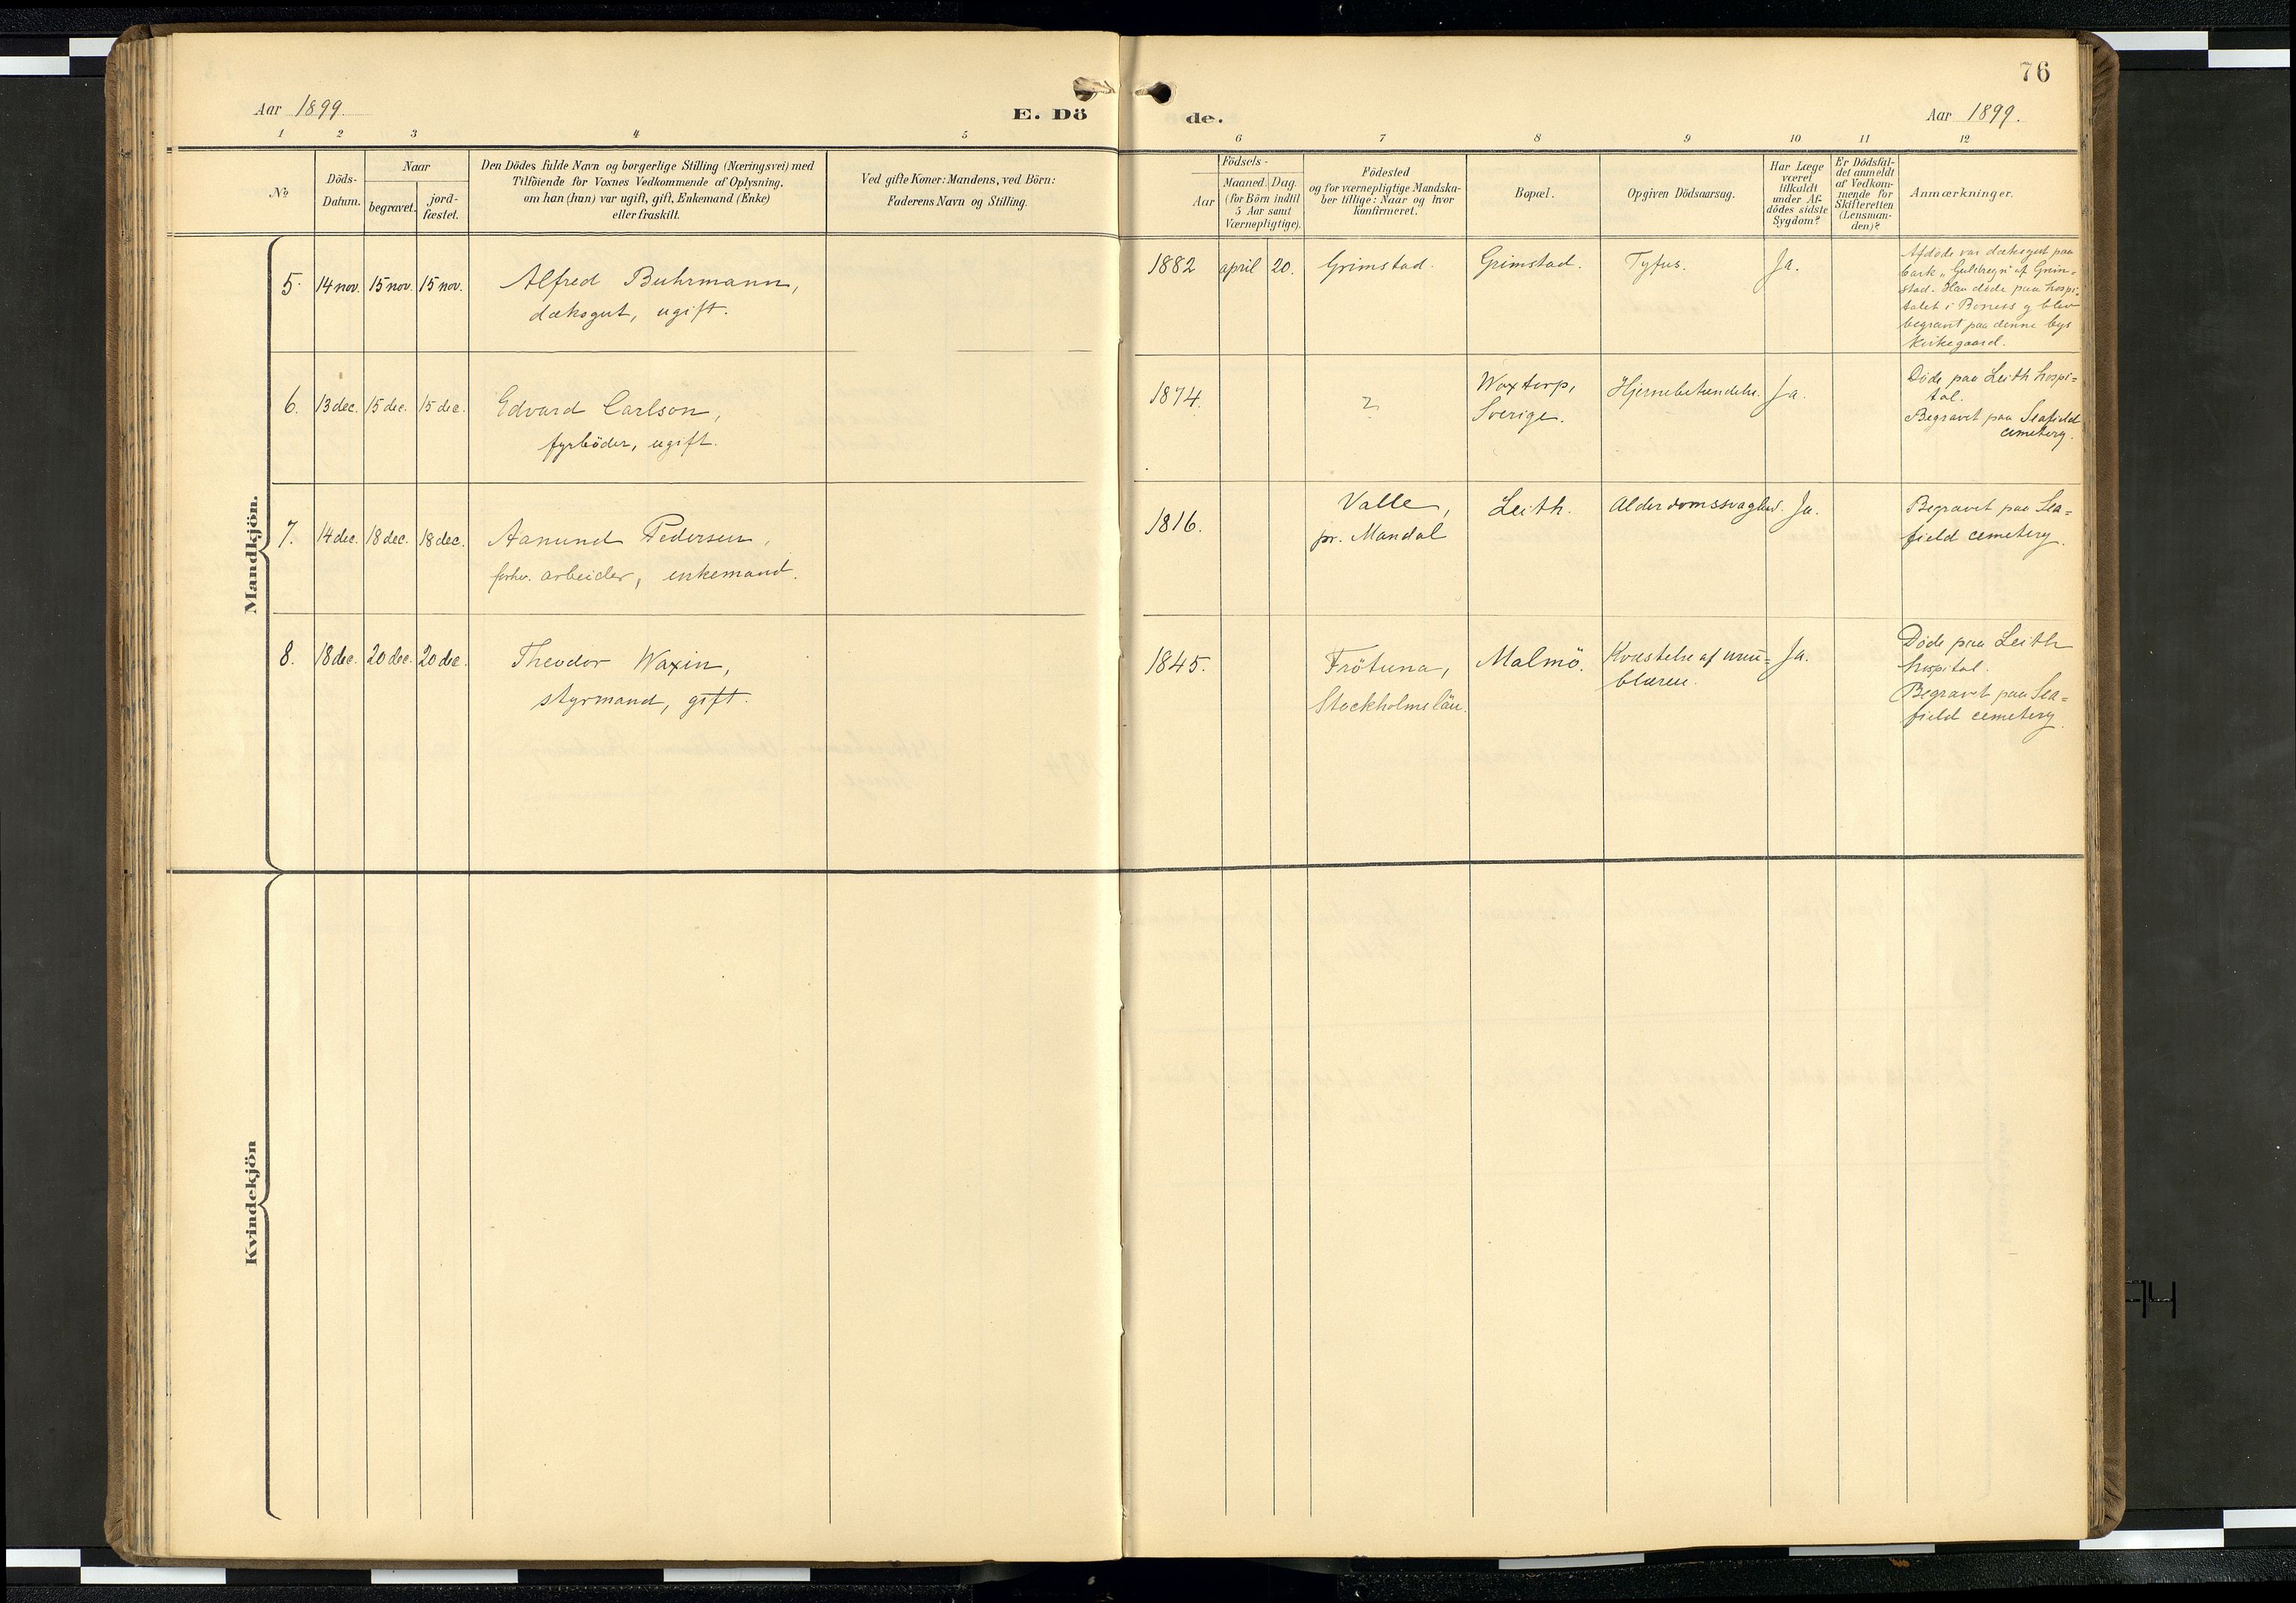 76
Aar 1899.
E. Dö
de.
Aar 1899.
1 2 3 4 5 6 7 8 9 10 11 12
No
Döds-
Datum.
Naar
begravet.
jord-
fæstet.
Den Dödes fulde Navn og borgerlige Stilling (Næringsvei) med
Tilföiende for Voxnes Vedkommende af Oplysning,
om han (hun) var ugift, gift, Enkemand (Enke)
eller fraskilt.
Ved gifte Koner: Mandens, ved Börn:
Faderens Navn og Stilling.
Födsels-
Aar
Maaned. Dag.
(for Börn indtil
5 Aar samt
Værnepligtige).
Födested
og for værnepligtige Mandska-
ber tillige: Naar og hvor
konfirmeret.
Bopæl.
Opgiven Dödsaarsag.
Har Læge
været
tilkaldt
under Af-
dödes sidste
Sygdom?
Er Dödsfal-
det anmeldt
af Vedkom-
mende for
Skifteretten
(Lensman-
den)?
Anmærkninger.
Mandkjön.
5. 14 nov. 15 nov. 15 nov.
Alfred Buhrmann,
dæksgut, ugift.
1882 april 20. Grimstad. Grimstad. Tyfus. Ja.
Afdøde var dæksgut paa
bark "Guldregn" af Grim-
stad. Han døde paa hospi-
talet i Boness og blev
begravet paa denne bys
kirkegaard.
6. 13 dec. 15 dec. 15 dec.
Edvard Carlson,
fyrbøder, ugift.
1874. ?
Woxtorp,
Sverige.
Hjernebetændelse. Ja.
Døde paa Leith hospi=
tal.
Begravet paa Seafield
cemetery.
7. 14 dec. 18 dec. 18 dec.
Aanund Pedersen,
forhv. arbeider, enkemand.
1816.
Valle,
pr. Mandal
Leith. Alderdomssvaghed. Ja.
Begravet paa Sea=
field cemetery.
8. 18 dec. 20 dec. 20 dec.
Theodor Waxin,
styrmand, gift.
1845.
Frötuna,
Stockholms län.
Malmö.
Kvæstelse af urin=
blæren.
Ja.
Døde paa Leith
hospital.
Begravet paa Sea=
field cemetery.
Kvindekjön